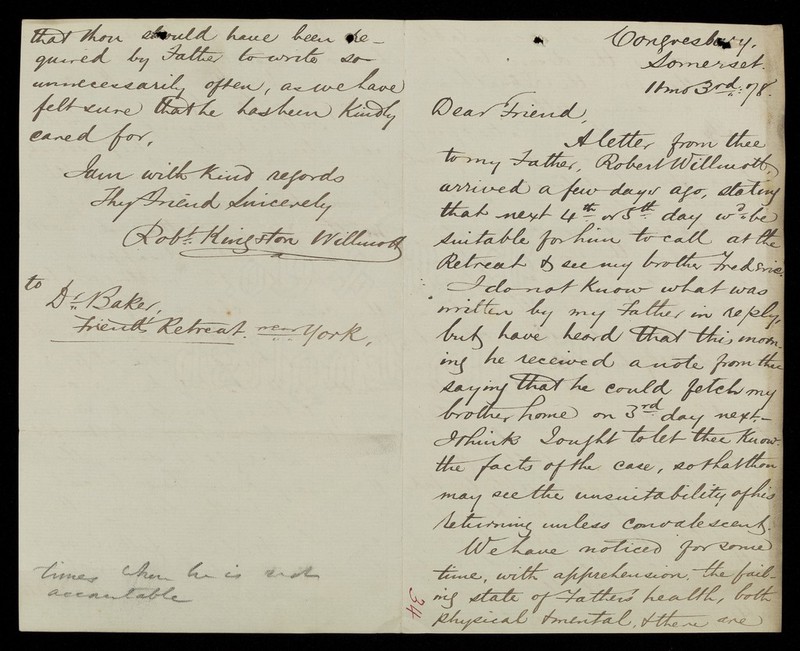 Congresbury.
Somerset.
11mo 3rd. 78.
Dear Friend,
A letter from thee
to my Father, Robert Willmott,
arrived a few days ago, stating
that next 4th or 5th day wd. be
suitable for him to call at the
Retreat & see my brother Frederic.
I do not know what was
written by my Father in reply,
but have heard that this morn-
ing he received a note from thee
saying that he could fetch my
brother home on 3rd day next.-
I think I ought to let thee know
the facts of the case, so that thou
may see the unsuitability of his
returning unless convalescent.
We have noticed for some
time, with apprehension, the fail-
ing state of Father's health, both
physical & mental, & there are
34
that thou should have been re-
quired by Father to write so
unnecessarily often, as we have
felt sure that he has been kindly
cared for,
I am with kind regards
Thy Friend sincerely
Robt. Kingston Willmott
to
Dr. Baker,
Friends' Retreat. near York,
times when he is not
accountable